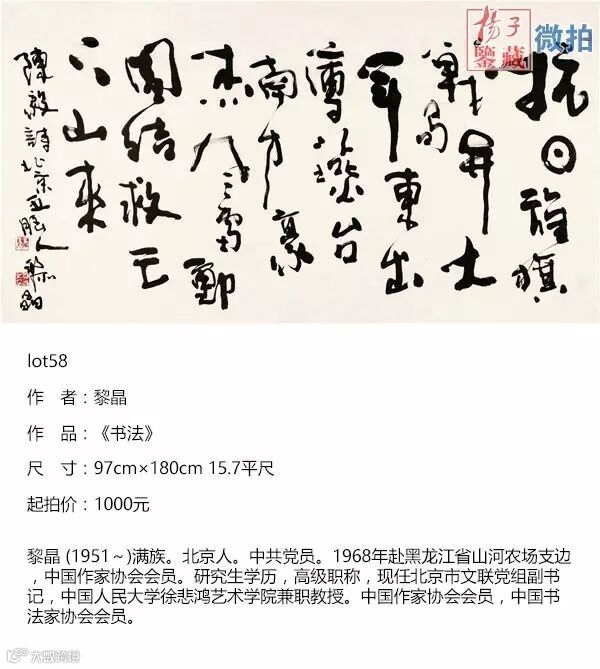 揚子
鑒藏
微拍
抗日旌旗
戰局
年東出
台
南方豪
杰
團結救亡
下山來
陳毅詩北京
人黎晶
lot58
作 者：黎晶
作 品：《书法》
尺 寸：97cm×180cm 15.7平尺
起拍价：1000元
黎晶 (1951～)满族。北京人。中共党员。1968年赴黑龙江省山河农场支边
，中国作家协会会员。研究生学历，高级职称，现任北京市文联党组副书
记，中国人民大学徐悲鸿艺术学院兼职教授。中国作家协会会员，中国书
法家协会会员。
大数跨境